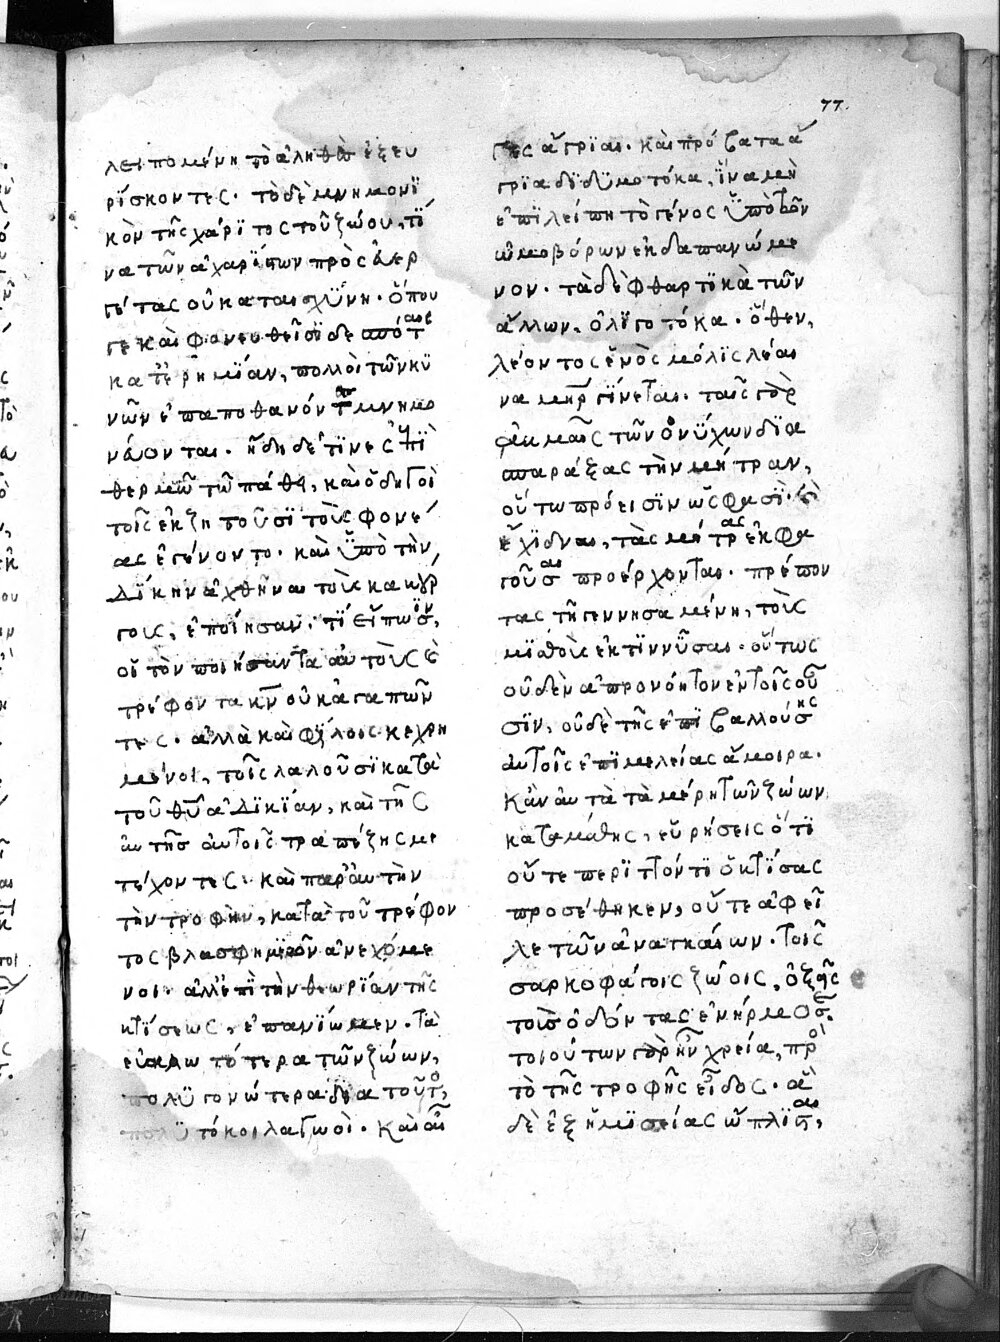 λειπομένη τὸ ἀληθὲς ἐξευ
ρίσκοντες· τὸ δὲ μνημονϊ
κὸν τῆς χάρϊτος τοῦ ζώου, τί
να τῶν ἀχαρίστων πρὸς εὐερ
γέτας οὐ καταισχύνη· ὅπου
γε καὶ φονευθεῖσϊ δεσπότ(αις)
κατ' ἐρημίαν, πολλοὶ τῶν κϋ
νῶν ἐπαποθανόντ(ες) μνημο
νεύονται· ἤδη δέ τϊνες ἐπὶ
θερμῶ τῶ πάθει, καὶ ὁδηγοὶ
τοῖς ἐκζητοῦσϊ τοὺς φονέ
ας ἐγένοντο· καὶ ὑπὸ τὴν
δίκην ἀχθῆναι τοὺς κακούρ
γους, ἐποίησαν· τί εἴπωσϊν,
οἱ τὸν ποιήσαντα αὐτοὺς καὶ
τρέφοντα κν̅ οὐκ ἀγαπῶν
τες· ἀλλὰ καὶ φίλοις κεχρη
μένοι, τοῖς λαλοῦσϊ κατὰ
τοῦ θυ̅ ἀδϊκίαν, καὶ τῆς
αὐτῆς αὐτοῖς τραπέζης με
τέχοντες· καὶ παρ' αὐτὴν
τὴν τροφὴν, κατὰ τοῦ τρέφον
τος βλασφημιῶν ἀνεχόμε
νοι· ἀλλ' ἐπὶ τὴν θεωρίαν τῆς
κτίσεως, ἐπανίωμεν. τὰ
εὐαλωτότερα τῶν ζώων,
πολϋγονώτερα διὰ τοῦτο,
πολϋτόκοι λαγωοὶ· καὶ αἶ
γες ἄγριαι· καὶ πρόβατα ἄ
γρια δϊδϋμοτόκα, ἵνα μὴ
ἐπϊλείπη τὸ γένος ὑπὸ τῶν
ὠμοβόρων ἐκδαπανώμε
νον· τὰ δὲ φθαρτϊκὰ τῶν
ἄλλων, ὀλϊγοτόκα· ὅθεν,
λέοντος ἑνὸς μόλϊς λέαι
να μήτηρ γίνεται· ταῖς γὰρ
ἀκμαῖς τῶν ὀνύχων δϊα
σπαράξας τὴν μήτραν,
οὕτω πρόεισϊν ὥς φασϊ· καὶ
ἔχϊδναι, τὰς μήτρας ἐκφα
γοῦσαι προέρχονται· πρέπον
τας τῆ γεννησαμένη, τοὺς
μϊσθοὺς ἐκτϊννῦσαι· οὕτως
οὐδὲν ἀπρονόητον ἐν τοῖς οὖ
σϊν, οὐδὲ τῆς ἐπϊβαλλούσης
αὐτοῖς ἐπϊμελείας ἄμοιρα·
κἂν αὐτὰ τὰ μέρη τῶν ζώων
καταμάθης, εὑρήσεις ὅτϊ
οὔτε περϊττόν τϊ ὁ κτίσας
προσέθηκεν, οὔτε ἀφεῖ
λε τῶν ἀναγκαίων· τοῖς
σαρκοφάγοις ζώοις, ὀξεῖς
τοὺς ὀδόντας ἐνήρμοσ(εν)·
τοιούτων γὰρ ἦν χρεία, πρὸ(ς)
τὸ τῆς τροφῆς εἶδος· ἃ
δὲ ἐξ ἡμϊσείας ὥπλϊσται,